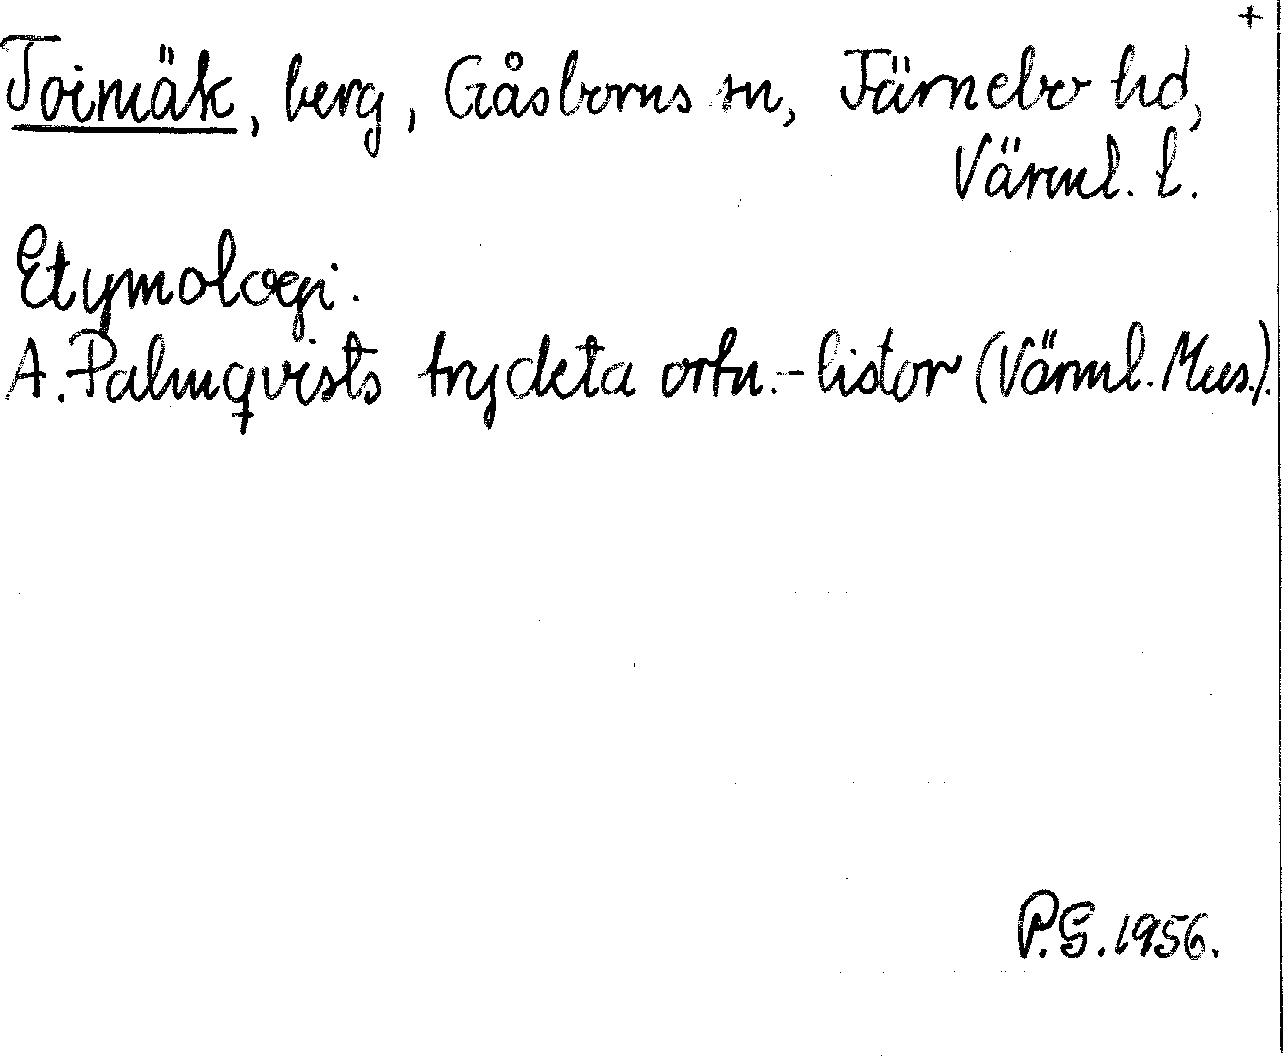 +
Toimäk, berg, Gåsborns sn, Färnebo hd,
Värml. l.
Etymologi.
A. Palmqvists tryckta ortn.-listor (Värml. Mus.).
P.G. 1956.